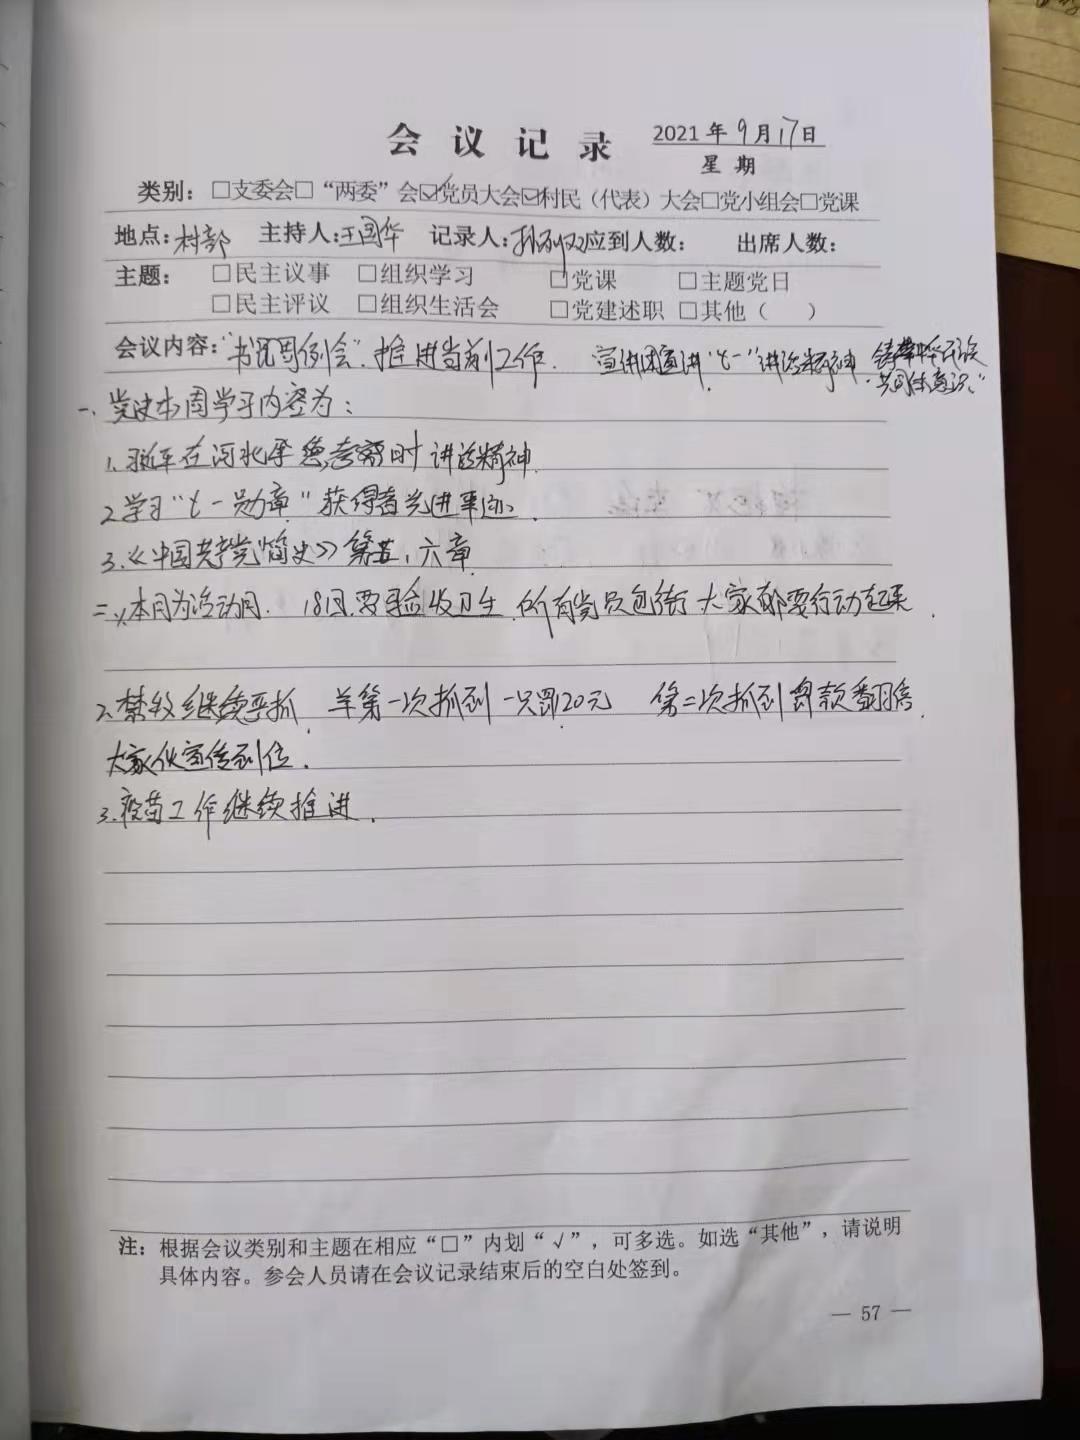 会议记录 2021年9月17日
星期
类别：□支委会□“两委”会☑党员大会☑村民（代表）大会□党小组会□党课
地点：村部 主持人：王国华 记录人：孙利双 应到人数： 出席人数：
主题： □民主议事 □组织学习 □党课 □主题党日
□民主评议 □组织生活会 □党建述职 □其他（ ）
会议内容：“书记周例会”.推进当前工作. 宣讲团宣讲“七一”讲话精神. 铸牢中华民族
共同体意识.”
一、党史本周学习内容为：
1、习近平在河北承德考察时讲话精神.
2、学习“七一勋章”获得者先进事迹.
3、《中国共产党简史》第五、六章
二、1、本月为活动月. 18日要验收卫生.所有党员包街 大家都要行动起来.
2、禁牧继续严抓. 羊第一次抓到一只罚20元 第二次抓到罚款翻倍.
大家伙宣传到位.
3、疫苗工作继续推进.
注：根据会议类别和主题在相应“□”内划“√”，可多选。如选“其他”，请说明
具体内容。参会人员请在会议记录结束后的空白处签到。
— 57 —